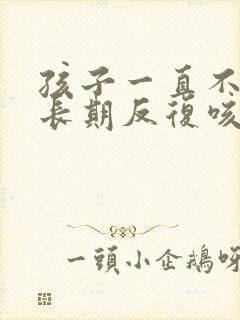 孩子一直不
長期反復咳
一頭小企鵝呀